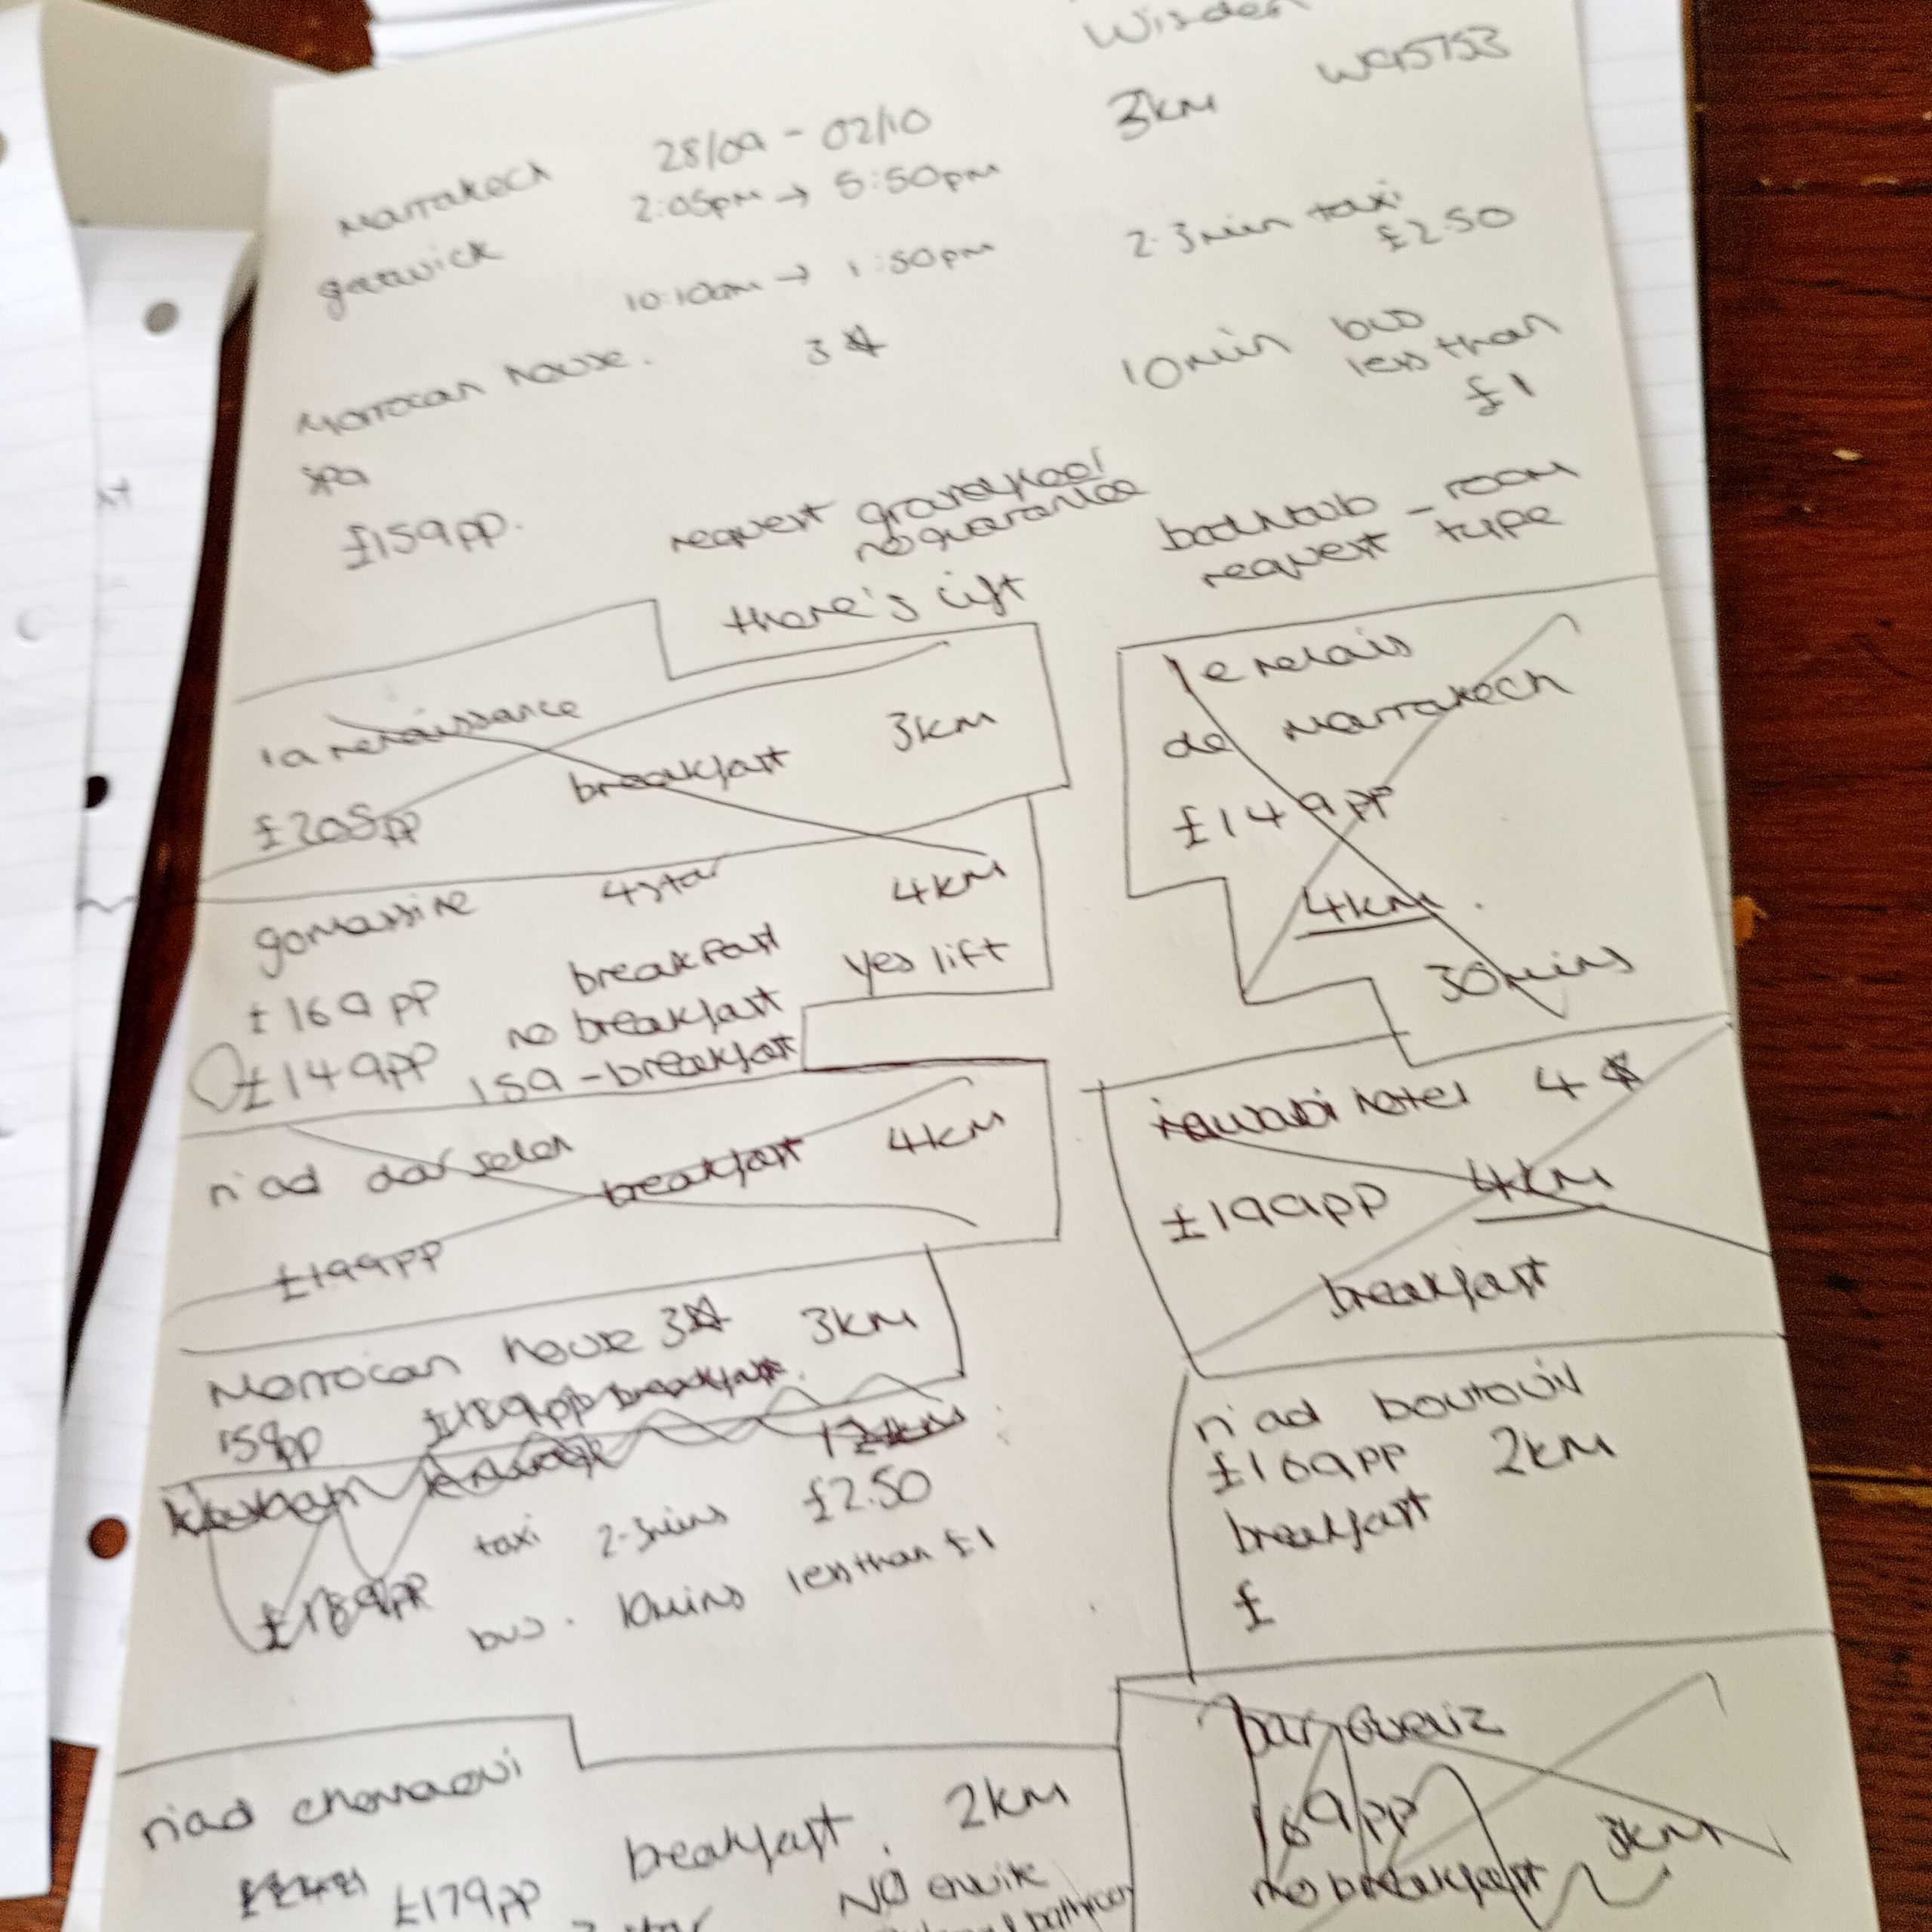 Wisden
Marrakech 28/09 - 02/10 3km W95753
gatwick 2:05pm → 5:50pm
10:10am → 1:50pm 2-3min taxi
£2.50
Morrocan house. 3☆ 10min bus
less than
£1
spa
£159pp. request ground pool
no guarantee
bathtub - room
request type
there's lift
la renaissance
£208pp breakfast 3km
le relais
de Marrakech
£149pp
4km.
30mins
gomassine 4star 4km
£169pp breakfast yes lift
£149pp no breakfast
159 - breakfast
riad dar selen
£199pp breakfast 4km
rawabi hotel 4☆
£199pp 4km
breakfast
Morrocan house 3☆ 3km
159pp £189pp breakfast.
12km
£189pp taxi 2-3mins £2.50
bus. 10mins less than £1
riad boutouil
£169pp 2km
breakfast
£
riad cherraoui
£179pp breakfast. 2km
NO ensuite
bathroom
169pp
no breakfast 3km